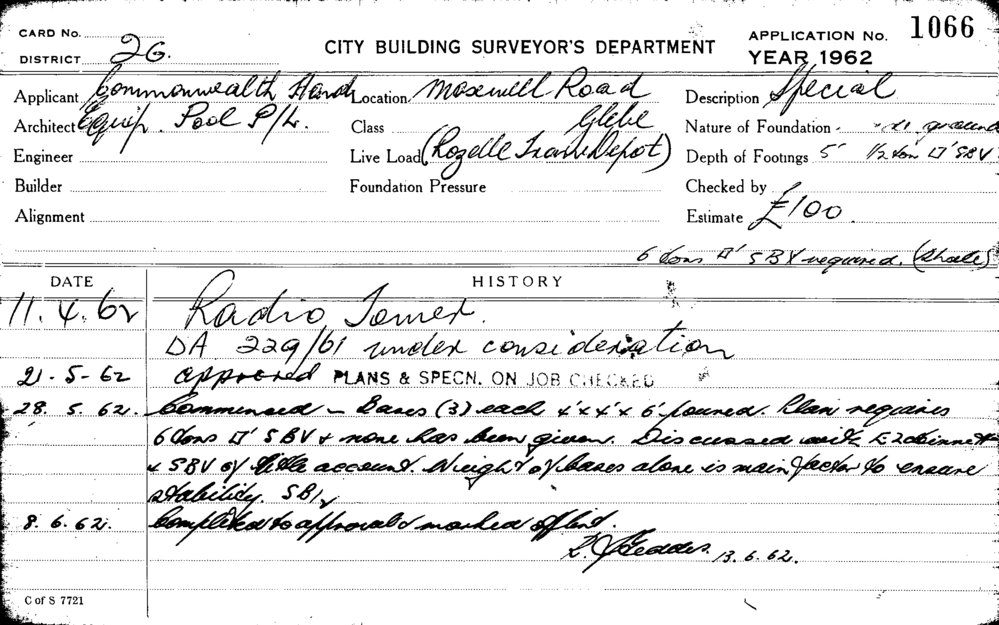 CARD No.
DISTRICT 2G.
CITY BUILDING SURVEYOR'S DEPARTMENT
APPLICATION No. 1066
YEAR 1962
Applicant Commonwealth Hand Location Maxwell Road Description Special
Architect Equip. Pool P/L. Class Glebe Nature of Foundation ground
Engineer Live Load (Rozelle Tram Depot) Depth of Footings 5' 1/2 ton □' SBV
Builder Foundation Pressure Checked by
Alignment Estimate £100.
6 tons □' SBV required. (Shale)
DATE HISTORY
11.4.62 Radio Tower.
DA 229/61 under consideration
21-5-62 approved PLANS & SPECN. ON JOB CHECKED
28.5.62. Commenced - Bases (3) each 4'x4'x6' poured. Plan requires
6 tons □' SBV & none has been given. Discussed with
& SBV of little account. Weight of bases alone is main factor to ensure
stability.
8.6.62. Completed to approval & marked off list.
Geddes. 13.6.62.
C of S 7721